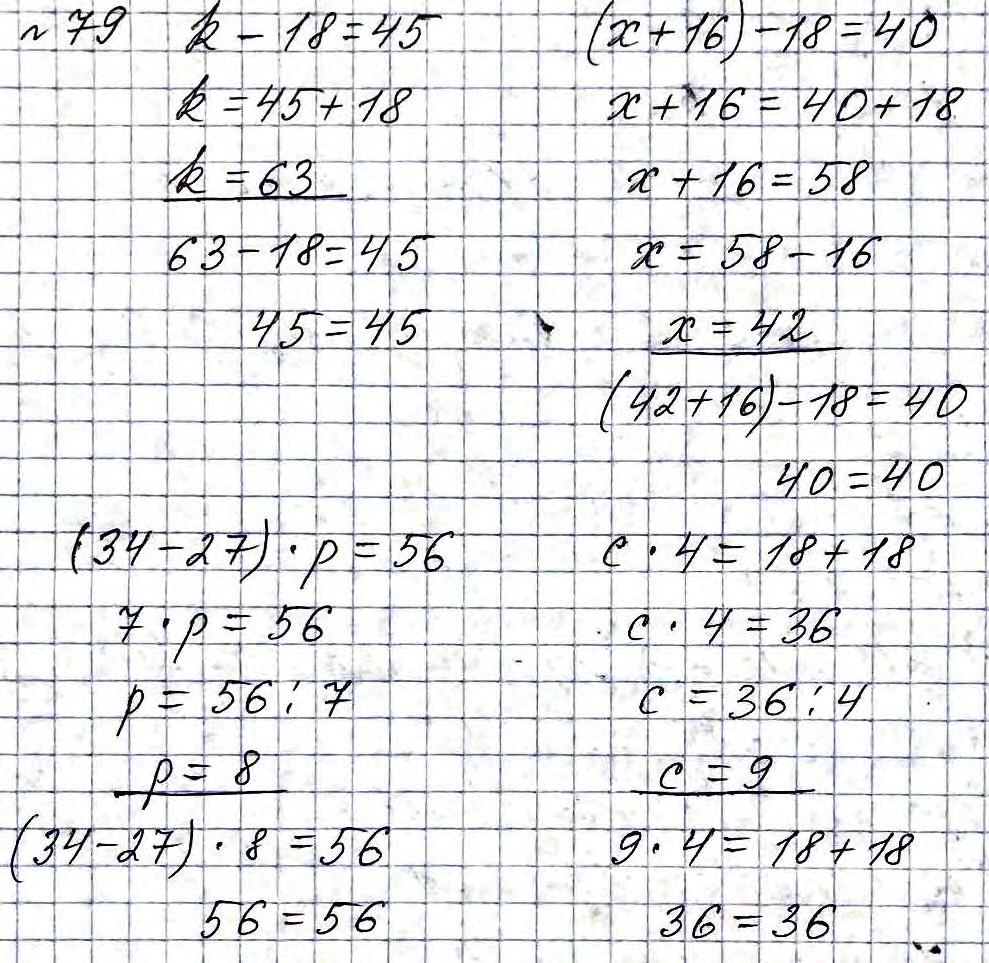 № 79 k - 18 = 45
k = 45 + 18
k = 63
63 - 18 = 45
45 = 45
(x + 16) - 18 = 40
x + 16 = 40 + 18
x + 16 = 58
x = 58 - 16
x = 42
(42 + 16) - 18 = 40
40 = 40
(34 - 27) · p = 56
7 · p = 56
p = 56 : 7
p = 8
(34 - 27) · 8 = 56
56 = 56
c · 4 = 18 + 18
c · 4 = 36
c = 36 : 4
c = 9
9 · 4 = 18 + 18
36 = 36